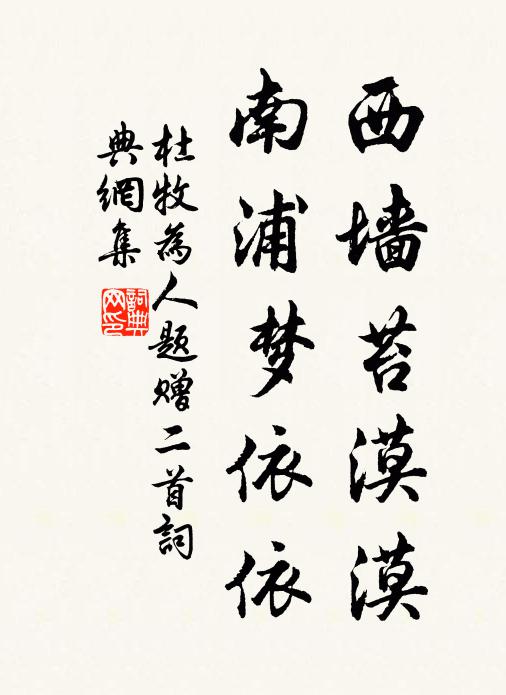 西墙苔漠漠
南浦梦依依
杜牧為人題赠二首詞
典網集
詞典
网印